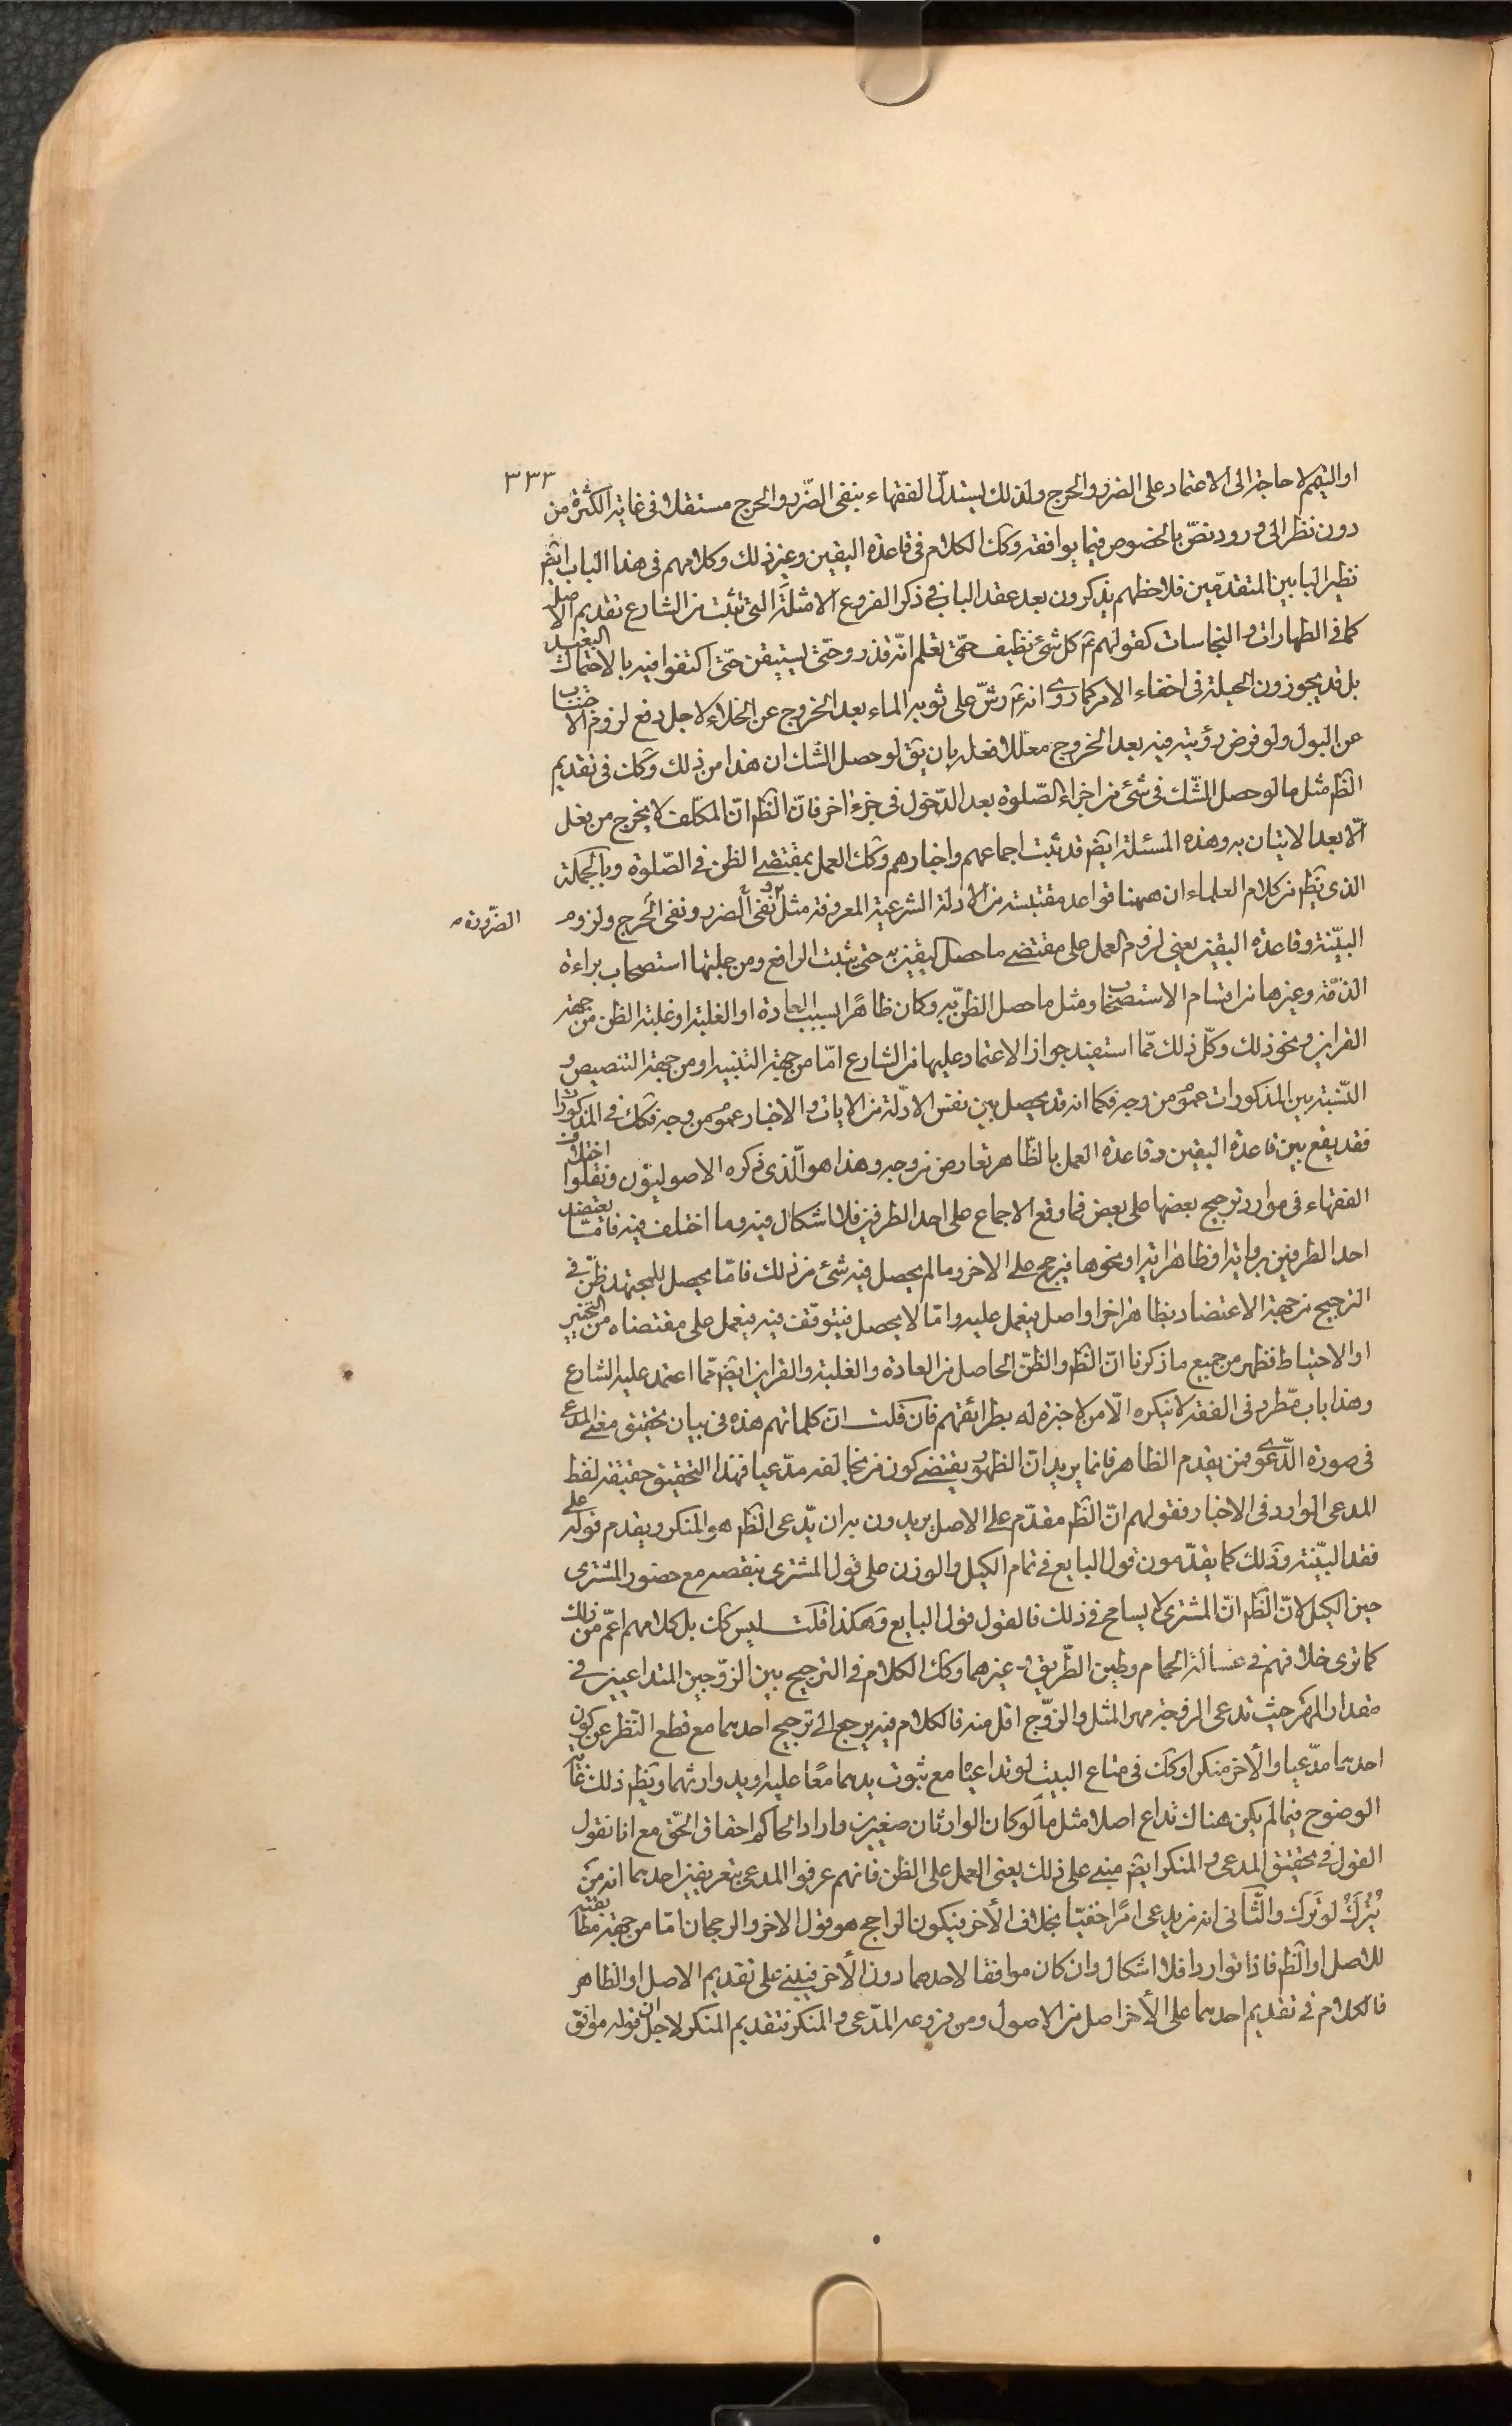 ٣٣٣
او التيمم لا حاجة الى الاعتماد على الضرر والحرج ولذلك يستدلّ الفقهاء بنفى الضّرر والحرج مستقلا فى غاية الكثرة من
دون نظر الى ورود نصّ بالخصوص فيما يوافقه وكك الكلام فى قاعدة اليقين وغير ذلك وكلامهم فى هذا الباب ايضً
نظير البابين المتقدّمين فلاحظهم يذكرون بعد عقد الباب فى ذكر الفروع الامثلة التى تثبت من الشارع تقديم الاصل
كما فى الطهارات والنجاسات كقولهم ع كل شئ نظيف حتّى تعلم انّه قذر وحتّى يستيقن حتّى اكتفوا فيه بالاحتمال البعيد
بل قد يجوزون الحيلة فى اخفاء الامر كما روى انه ع رشّ على ثوبه الماء بعد الخروج عن الخلاء لاجل دفع لزوم الاجتناب
عن البول ولو فرض رؤيته فيه بعد الخروج معللا فعله بان يقَ لو حصل الشك ان هذا من ذلك وكك فى تقديم
الظَ مثل ما لو حصل الشّك فى شئ من اجزاء الصّلوة بعد الدّخول فى جزء اخر فانّ الظَ انّ المكلف لا يخرج من فعل
الّا بعد الاتيان به وهذه المسئلة ايضً قد ثبت اجماعهم واخبارهم وكك العمل بمقتضى الظن فى الصّلوة وبالجملة
الذى يظَ من كلام العلماء ان ههنا قواعد مقتبسة من الادلة الشرعية المعروفة مثل نفى الضرر ونفى الحرج ولزوم
الضّرورة
البيّنة وقاعدة اليقين يعنى لزوم العمل على مقتضى ما حصل اليقين به حتى يثبت الرافع ومن جملتها استصحاب براءة
الذمّة وغيرها من اقسام الاستصحاب ومثل ما حصل الظنّ به وكان ظاهرًا بسبب العادة او الغلبة او غلبة الظن من جهة
القراين ونحو ذلك وكلّ ذلك ممّا استفيد جواز الاعتماد عليها من الشارع امّا من جهة التنبيه او من جهة التنصيص و
النّسبة بين المذكورات عموم من وجه فكما انه قد يحصل بين نفس الادلّة من الايات والاخبار عموم من وجه فكك فى المذكورات
فقد يقع بين قاعدة اليقين وقاعدة العمل بالظّاهر تعارض من وجه وهذا هو الّذى ذكره الاصوليّون ونقلوا اختلاف
الفقهاء فى موارد ترجيح بعضها على بعض فما وقع الاجماع على احد الطرفين فلا اشكال فيه وما اختلف فيه فامّا يعتضد
احد الطرفين برواية او ظاهر اية او نحوها فيرجح على الاخر وما لم يحصل فيه شئ من ذلك فامّا يحصل للمجتهد ظنّ فى
الترجيح من جهة الاعتضاد بظاهر اخر او اصل فيعمل عليه وامّا لا يحصل فيتوقّف فيه فيعمل على مقتضاه من التخيير
او الاحتياط فظهر من جميع ما ذكرنا انّ الظَ والظنّ الحاصل من العادة والغلبة والقراين ايضً ممّا اعتمد عليه الشارع
وهذا باب مطّرد فى الفقه لا ينكره الّا من لا خبرة له بطرائقهم فان قلت انّ كلماتهم هذه فى بيان تحقيق معنى المدعى
فى صورة الدّعوى فمن يقدم الظاهر فانما يريد انّ الظهور يقتضى كون من يخالفه مدّعيا فهذا التحقيق حقيقة لفظ
المدعى الوارد فى الاخبار فقولهم انّ الظَ مقدّم على الاصل يريدون به ان يدّعى الظَ هو المنكر ويقدم قوله على
فقد البيّنة وذلك كما يقدّمون قول البايع فى تمام الكيل والوزن على قول المشترى بنقصه مع حضور المشترى
حين الكيل لانّ الظَ انّ المشترى لا يسامح فى ذلك فالقول قول البايع وهكذا قلت ليس كك بل كلامهم اعمّ من ذلك
كما ترى خلافهم فى غسالة الحمام وطين الطّريق وغيرهما وكك الكلام فى الترجيح بين الزّوجين المتداعيين فى
مقدار المهر حيث تدعى الزوجة مهر المثل والزوّج اقل منه فالكلام فيه يرجع الى ترجيح احدهما مع قطع النّظر عن كون
احدهما مدّعيا والأخر منكرا وكك فى متاع البيت لو تداعياه مع ثبوت يدهما معًا عليه او يد وارثهما ويظَ ذلك غاية
الوضوح فيما لم يكن هناك تداع اصلا مثل ما لو كان الوارثان صغيرين واراد الحاكم احقاق الحقّ مع انا نقول
القول فى تحقيق المدعى والمنكر ايضً مبنى على ذلك يعنى العمل على الظن فانهم عرفوا المدعى بتعريفين احدهما انه مَن
يُترَكْ لو تَرَكَ والثّانى انه من يدعى امرًا خفيّا بخلاف الأخر فيكون الراجح هو قول الاخر والرجحان امّا من جهة مطابقته
للاصل او الظَ فاذا تواردا فلا اشكال وان كان موافقا لاحدهما دون الأخر فيبنى على تقديم الاصل او الظاهر
فالكلام فى تقديم احدهما على الأخر اصل من الاصول ومن فروعه المدّعى والمنكر فتقديم المنكر لاجل ان قوله موافق